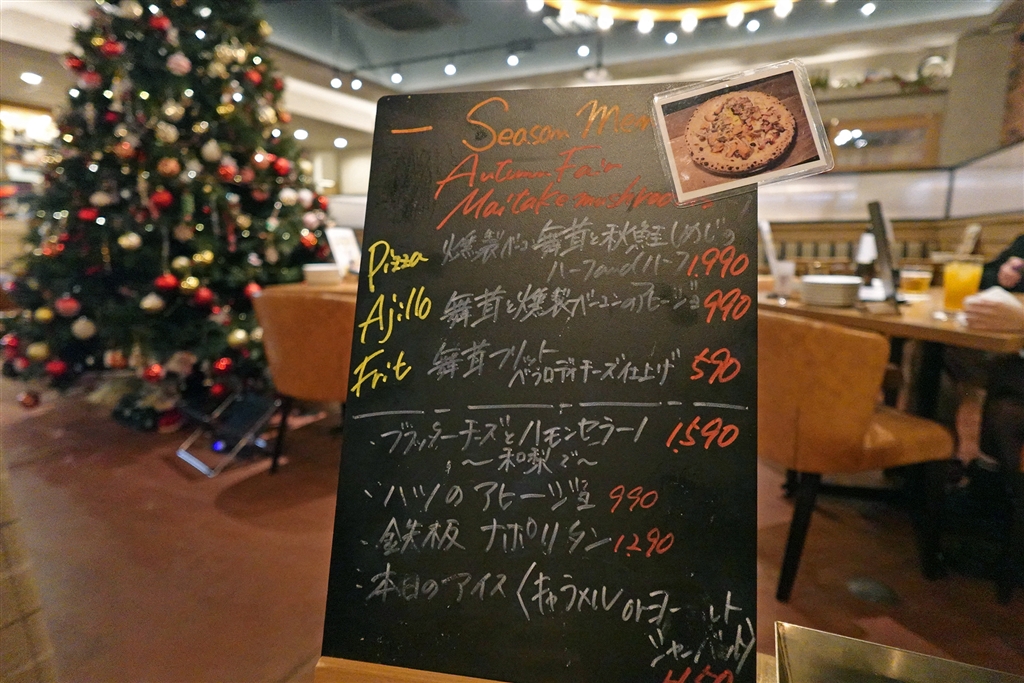 ー Season Men
Autumn Fair
Maitake mushroo
Pizza 燻製ベーコン 舞茸と秋鮭しめじの
ハーフandハーフ 1.990
Ajillo 舞茸と燻製ベーコンのアヒージョ 990
Frit 舞茸フリット
ペコロディチーズ仕上げ 590
・ブラッターチーズとハモンセラーノ 1.590
〜和梨で〜
・ハツのアヒージョ 990
・鉄板ナポリタン 1.290
・本日のアイス〈キャラメル orヨーグルト
シャーベット〉
450